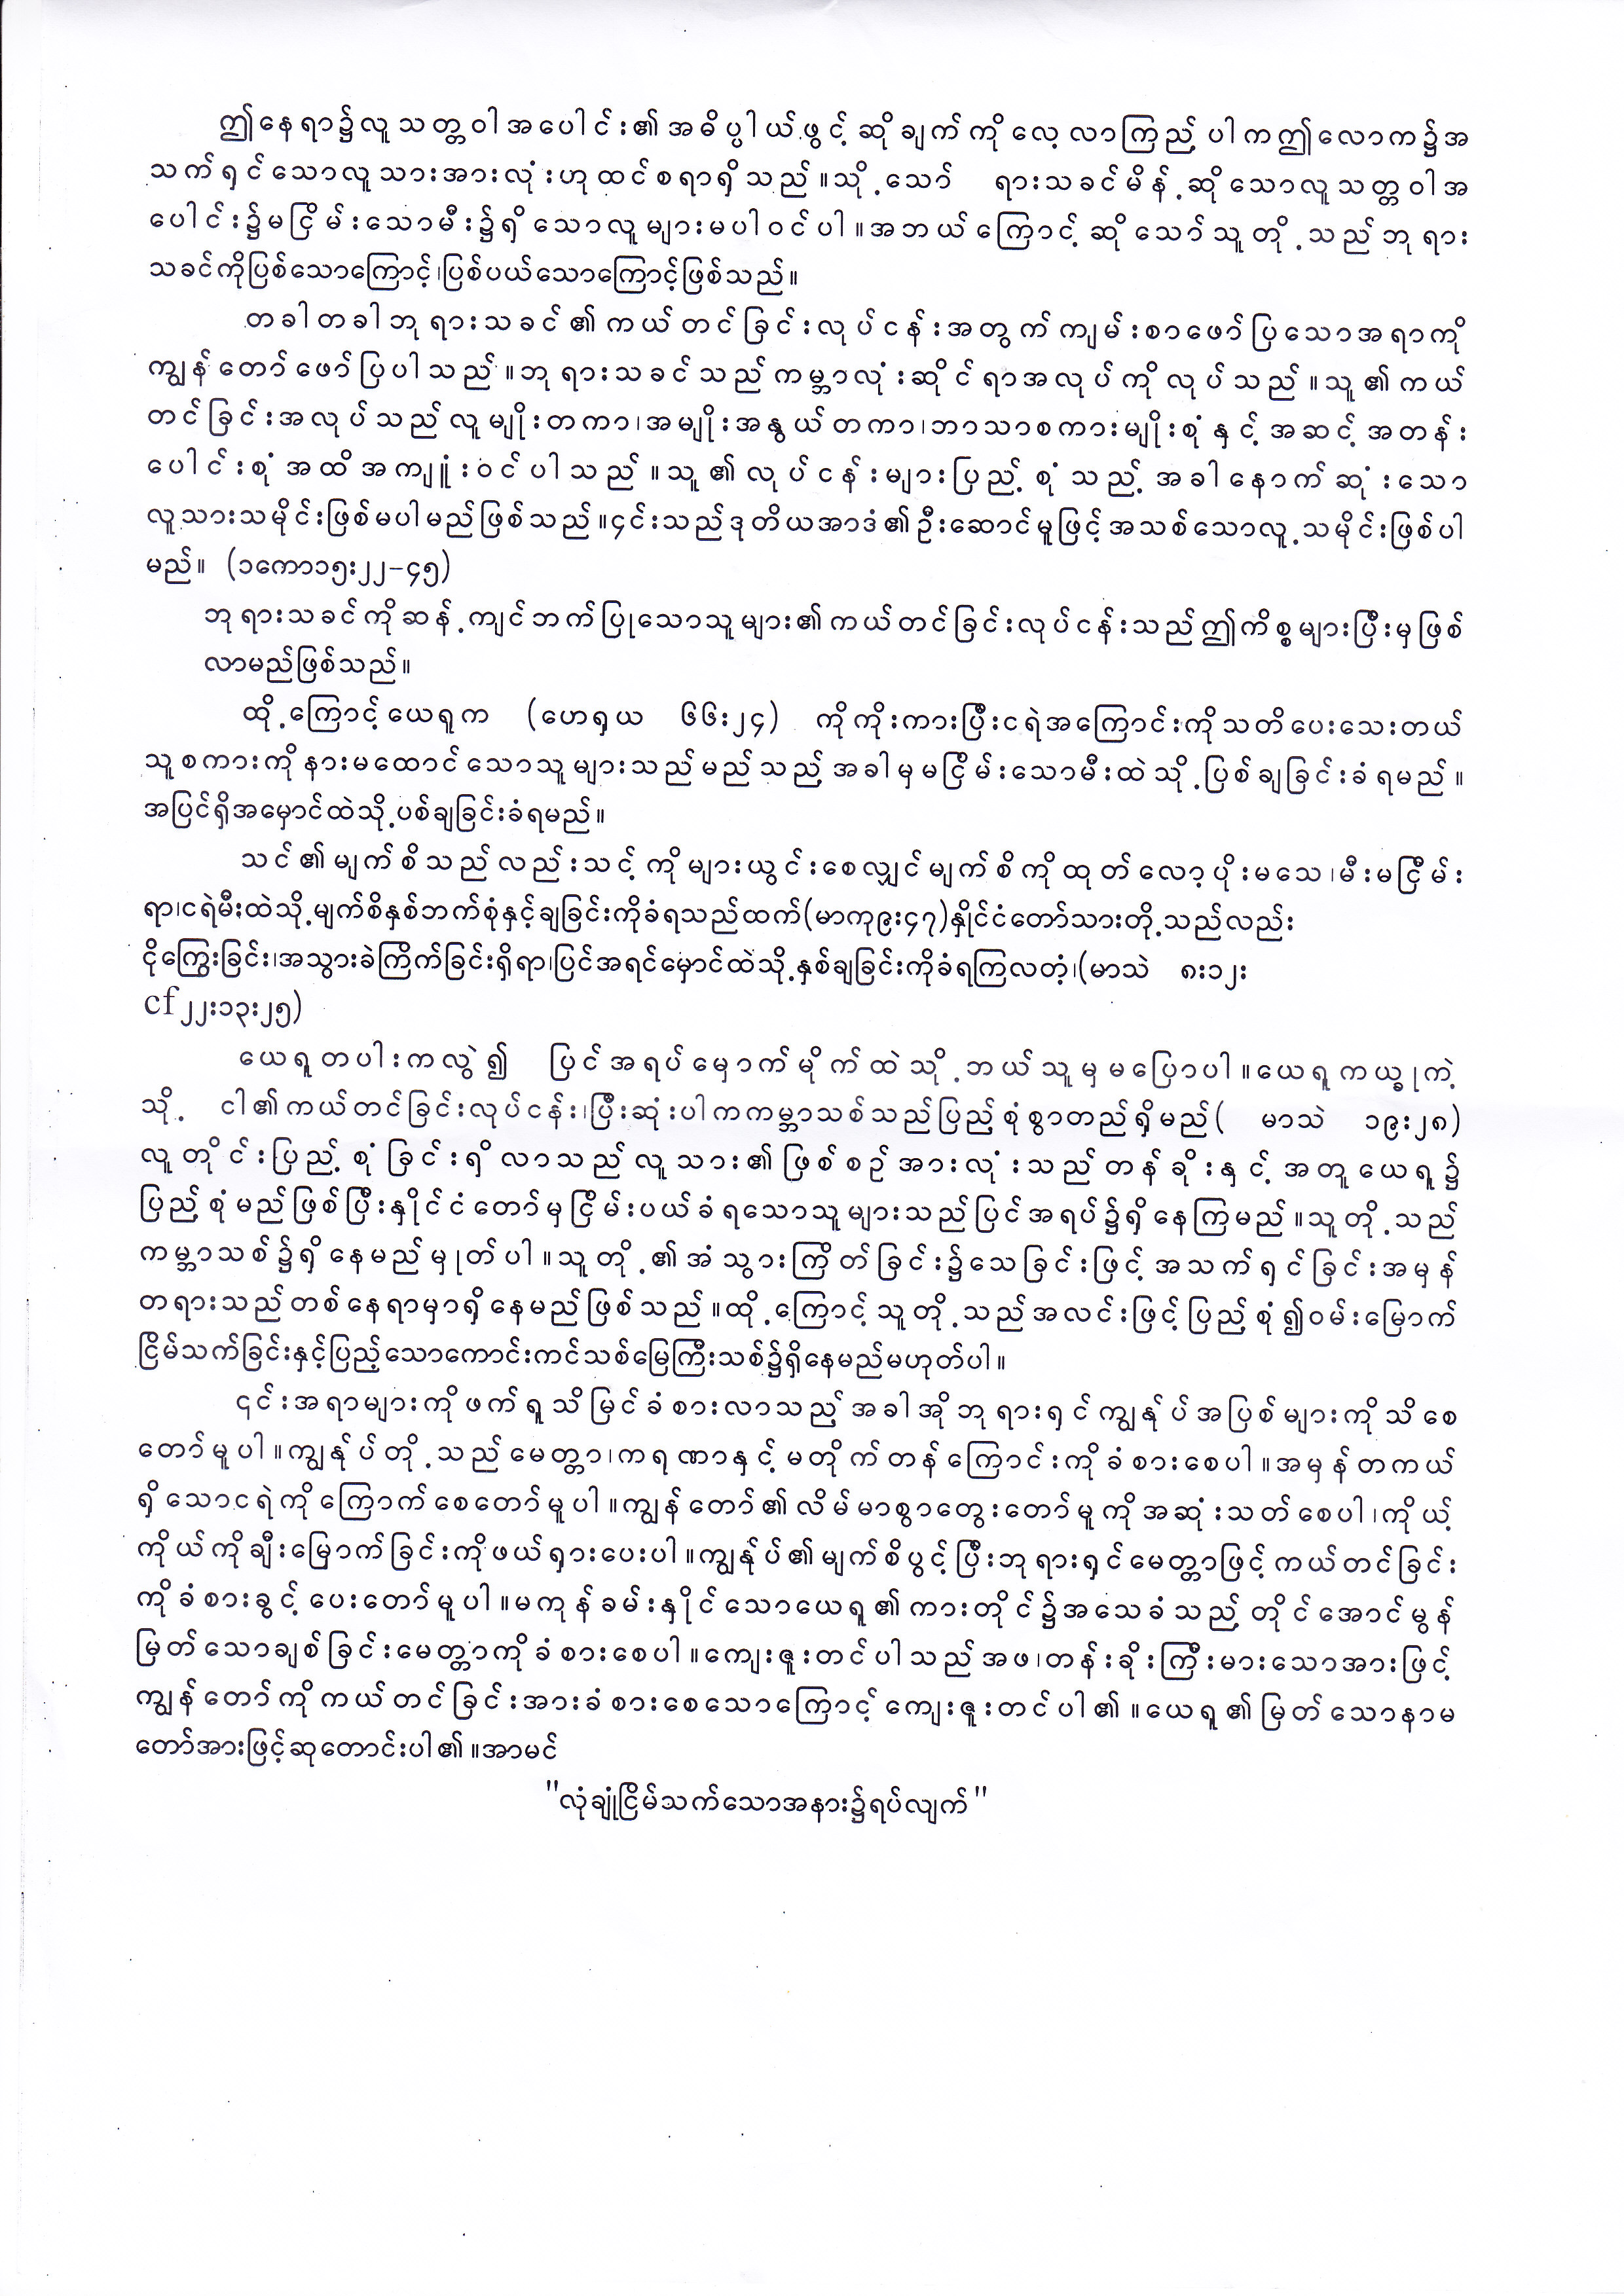 ဤနေရာ၌လူသတ္တဝါအပေါင်း၏အဓိပ္ပါယ်ဖွင့်ဆိုချက်ကိုလေ့လာကြည့်ပါကဤလောက၌အ
သက်ရှင်သောလူသားအားလုံးဟုထင်စရာရှိသည်။သို့သော် ရားသခင်မိန့်ဆိုသောလူသတ္တဝါအ
ပေါင်း၌မငြိမ်းသောမီး၌ရှိသောလူများမပါဝင်ပါ။အဘယ်ကြောင့်ဆိုသော်သူတို့သည်ဘုရား
သခင်ကိုပြစ်သောကြောင့်၊ပြစ်ပယ်သောကြောင့်ဖြစ်သည်။
တခါတခါဘုရားသခင်၏ကယ်တင်ခြင်းလုပ်ငန်းအတွက်ကျမ်းစာဖော်ပြသောအရာကို
ကျွန်တော်ဖော်ပြပါသည်။ဘုရားသခင်သည်ကမ္ဘာလုံးဆိုင်ရာအလုပ်ကိုလုပ်သည်။သူ၏ကယ်
တင်ခြင်းအလုပ်သည်လူမျိုးတကာ၊အမျိုးအနွယ်တကာ၊ဘာသာစကားမျိုးစုံနှင့်အဆင့်အတန်း
ပေါင်းစုံအထိအကျူံးဝင်ပါသည်။သူ၏လုပ်ငန်းများပြည့်စုံသည့်အခါနောက်ဆုံးသော
လူသားသမိုင်းဖြစ်မပါမည်ဖြစ်သည်။၄င်းသည်ဒုတိယအာဒံ၏ဦးဆောင်မူဖြင့်အသစ်သောလူ့သမိုင်းဖြစ်ပါ
မည်။ (၁ကော၁၅း၂၂−၄၅)
ဘုရားသခင်ကိုဆန့်ကျင်ဘက်ပြုသောသူများ၏ကယ်တင်ခြင်းလုပ်ငန်းသည်ဤကိစ္စများပြီးမှဖြစ်
လာမည်ဖြစ်သည်။
ထို့ကြောင့်ယေရူက (ဟေရှယ ၆၆း၂၄) ကိုကိုးကားပြီးငရဲအကြောင်းကိုသတိပေးသေးတယ်
သူစကားကိုနားမထောင်သောသူများသည်မည်သည့်အခါမှမငြိမ်းသောမီးထဲသို့ပြစ်ချခြင်းခံရမည်။
အပြင်ရှိအမှောင်ထဲသို့ပစ်ချခြင်းခံရမည်။
သင်၏မျက်စိသည်လည်းသင့်ကိုများယွင်းစေလျှင်မျက်စိကိုထုတ်လော့ပိုးမသေ၊မီးမငြိမ်း
ရာ၊ငရဲမီးထဲသို့မျက်စိနှစ်ဘက်စုံနှင့်ချခြင်းကိုခံရသည်ထက်(မာကု၉း၄၇)နှိုင်ငံတော်သားတို့သည်လည်း
ငိုကြွေးခြင်း၊အသွားခဲကြိုက်ခြင်းရှိရာ၊ပြင်အရင်မှောင်ထဲသို့နှစ်ချခြင်းကိုခံရကြလတံ့၊(မာသဲ ၈း၁၂း
cf၂၂း၁၃း၂၅)
ယေရူတပါးကလွဲ၍ ပြင်အရပ်မှောက်မိုက်ထဲသို့ဘယ်သူမှမပြောပါ။ယေရူကယ္ခုကဲ့
သို့ ငါ၏ကယ်တင်ခြင်းလုပ်ငန်း၊ပြီးဆုံးပါကကမ္ဘာသစ်သည်ပြည့်စုံစွာတည်ရှိမည်( မာသဲ ၁၉း၂၈)
လူတိုင်းပြည့်စုံခြင်းရှိလာသည်လူသား၏ဖြစ်စဉ်အားလုံးသည်တန်ခိုးနှင့်အတူယေရူ၌
ပြည့်စုံမည်ဖြစ်ပြီးနှိုင်ငံတော်မှငြိမ်းပယ်ခံရသောသူများသည်ပြင်အရပ်၌ရှိနေကြမည်။သူတို့သည်
ကမ္ဘာသစ်၌ရှိနေမည်မှုတ်ပါ။သူတို့၏အံသွားကြိတ်ခြင်း၌သေခြင်းဖြင့်အသက်ရှင်ခြင်းအမှန်
တရားသည်တစ်နေရာမှာရှိနေမည်ဖြစ်သည်။ထို့ကြောင့်သူတို့သည်အလင်းဖြင့်ပြည့်စုံ၍ဝမ်းမြောက်
ငြိမ်သက်ခြင်းနှင့်ပြည့်သောကောင်းကင်သစ်မြေကြီးသစ်၌ရှိနေမည်မဟုတ်ပါ။
၎င်းအရာများကိုဖက်ရူသိမြင်ခံစားလာသည့်အခါအိုဘုရားရှင်ကျွန်ုပ်အပြစ်များကိုသိစေ
တော်မူပါ။ကျွန်ုပ်တို့သည်မေတ္တာ၊ကရုဏာနှင့်မတိုက်တန်ကြောင်းကိုခံစားစေပါ။အမှန်တကယ်
ရှိသောငရဲကိုကြောက်စေတော်မူပါ။ကျွန်တော်၏လိမ်မာစွာတွေးတော်မူကိုအဆုံးသတ်စေပါ၊ကိုယ့်
ကိုယ်ကိုချီးမြှောက်ခြင်းကိုဖယ်ရှားပေးပါ။ကျွန်ုပ်၏မျက်စိပွင့်ပြီးဘုရားရှင်မေတ္တာဖြင့်ကယ်တင်ခြင်း
ကိုခံစားခွင့်ပေးတော်မူပါ။မကုန်ခမ်းနှိုင်သောယေရူ၏ကားတိုင်၌အသေခံသည့်တိုင်အောင်မွန်
မြတ်သောချစ်ခြင်းမေတ္တာကိုခံစားစေပါ။ကျေးဇူးတင်ပါသည်အဖ၊တန်းခိုးကြီးမားသောအားဖြင့်
ကျွန်တော်ကိုကယ်တင်ခြင်းအားခံစားစေသောကြောင့်ကျေးဇူးတင်ပါ၏။ယေရူ၏မြတ်သောနာမ
တော်အားဖြင့်ဆုတောင်းပါ၏။အာမင်
"လုံချုံငြိမ်သက်သောအနား၌ရပ်လျက်"